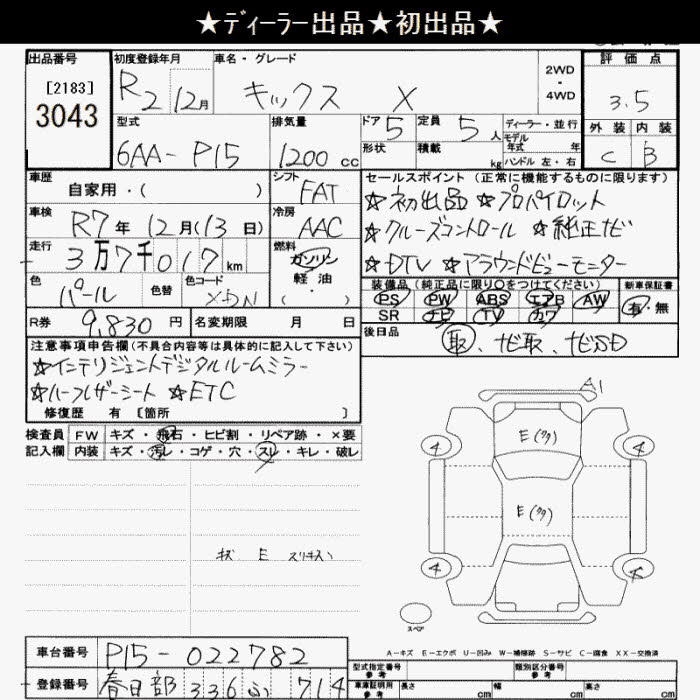 ★ディーラー出品★初出品★
出品番号 初度登録年月 車名・グレード 2WD・4WD 評価点
[2183]
3043
R2 12月 キックス X 3.5
型式 排気量 ドア 5 定員 5人 ディーラー・並行 外装 内装
モデル年式 年式
6AA-P15 1200cc 形状 積載 kg ハンドル 左・右 C B
車歴 自家用・( ) シフト FAT セールスポイント (正常に機能するものに限ります)
★初出品 ★プロパイロット
車検 R7年12月(13日) 冷房 AAC
★クルーズコントロール ★純正ナビ
走行 3万7千017km 燃料 ガソリン 軽油 ( ・ )
★DTV ★アラウンドビューモニター
色 パール 色替 色コード
装備品(純正品に限り○をつけてください) 新車保証書
PS PW ABS エアB AW 有・無
SR ナビ TV カワ
R券 9,830円 名変期限 月 日
後日品 取、ナビ取、ナビSD
注意事項申告欄(不具合内容等は具体的に記入して下さい)
★インテリジェントデジタルルームミラー
★ハーフレザーシート ★ETC
修復歴 有 〔箇所 〕
検査員記入欄 FW キズ・飛石・ヒビ割・リペア跡・×要
内装 キズ・汚レ・コゲ・穴・スレ・キレ・破レ
A1
E(タタ)
4 4
E(タタ)
キズ E スリキズ
4
スペア
A-キズ E-エクボ U-凹み W-補修跡 S-サビ C-腐食 XX-交換済
車台番号 P15-022782
型式指定番号 参考 類別区分番号 参考
登録番号 春日部 336 ふ 714
車庫証明用 参考 長さ cm 幅 cm 高さ cm